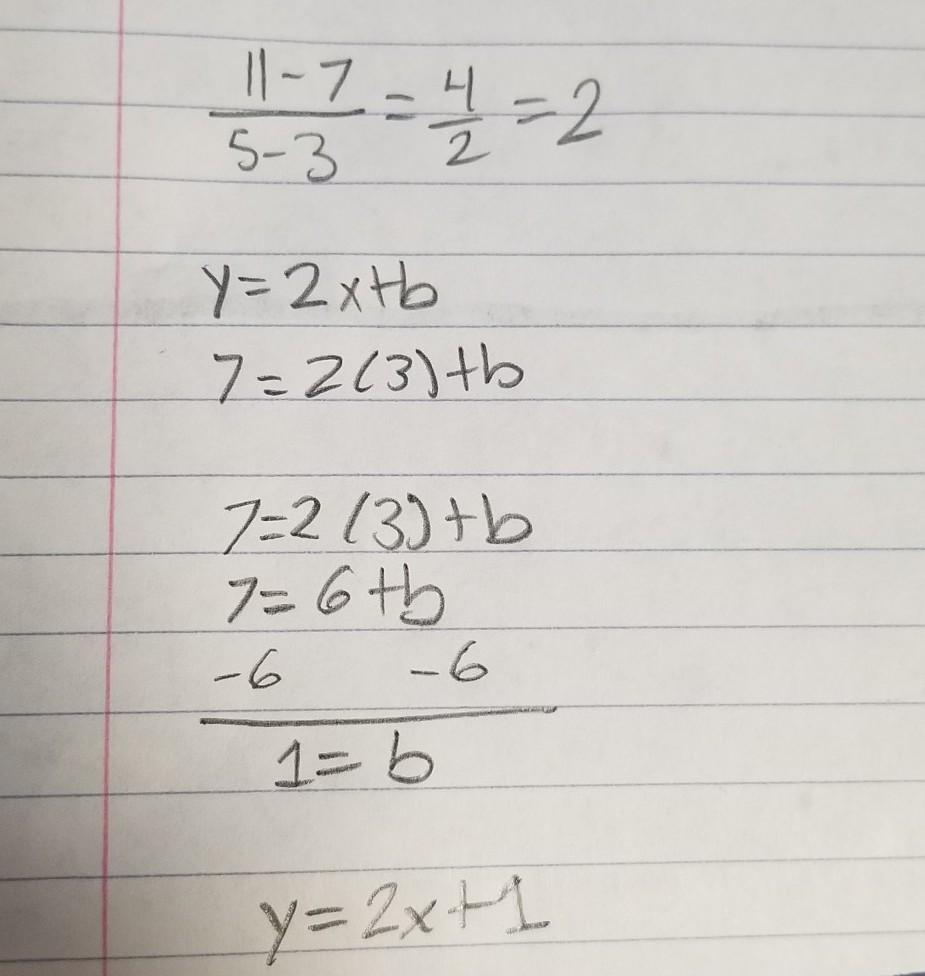 11-7/5-3 = 4/2 = 2
y=2x+b
7=2(3)+b
7=2(3)+b
7=6+b
-6 -6
1=b
y=2x+1